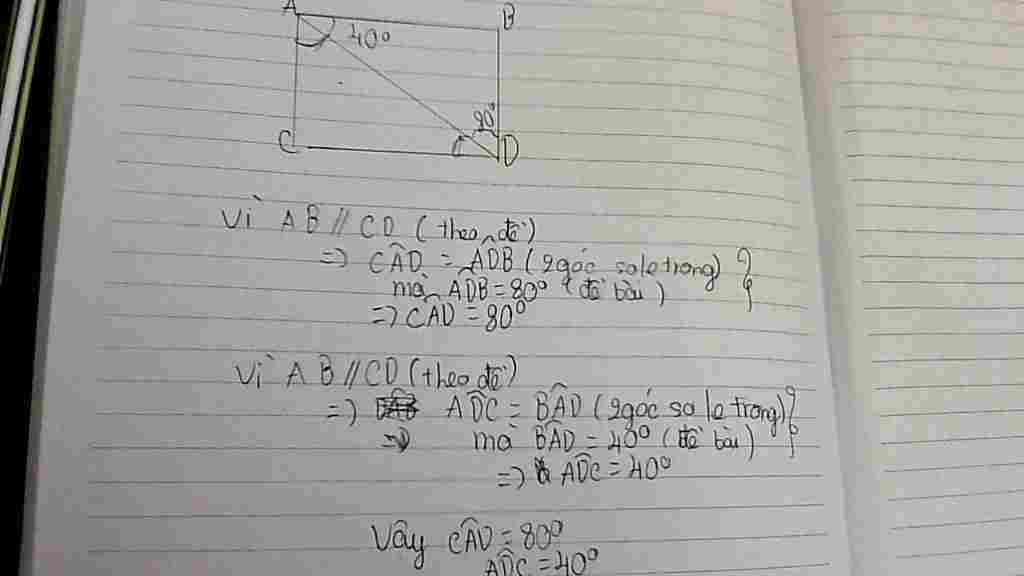 A B
40°
80°
C D
Vì AB // CD (theo đề)
=> CÂD = ADB (2 góc so le trong) }
mà ADB = 80° (đề bài)
=> CÂD = 80°
Vì AB // CD (theo đề)
=> ADC = BÂD (2 góc so le trong) }
=> mà BÂD = 40° (đề bài)
=> ADC = 40°
Vậy CÂD = 80°
ADC = 40°